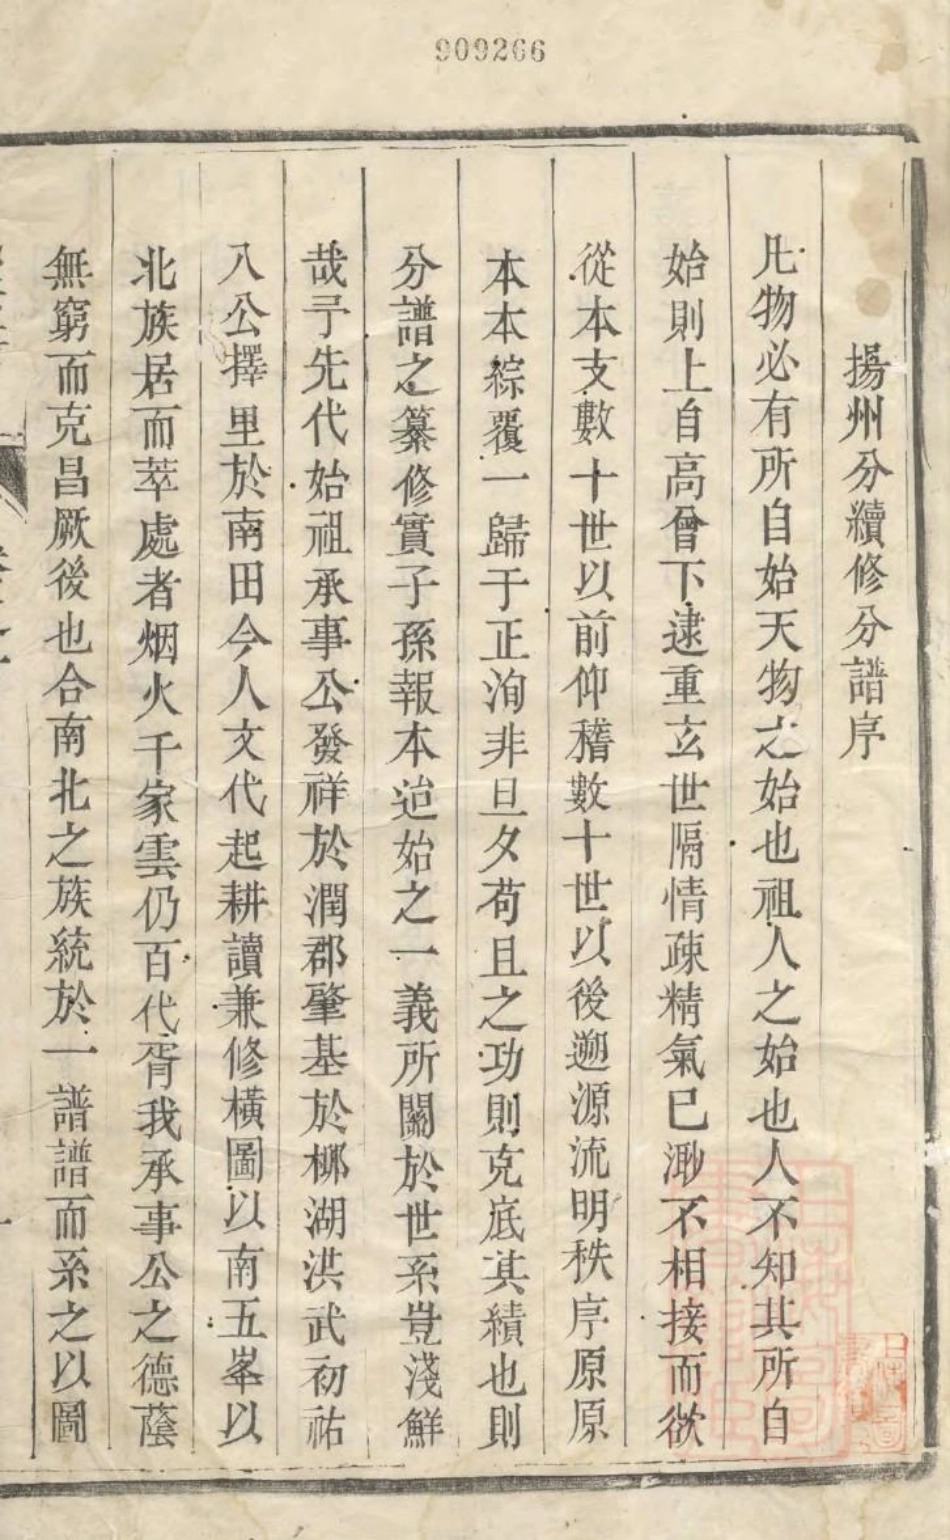 909266
揚州分續修分譜序
凡物必有所自始天物之始也祖人之始也人不知其所自
始則上自高曾下逮重玄世隔情疎精氣已渺不相接而欲
從本支數十世以前仰稽數十世以後遡源流明秩序原原
本本綜覈一歸于正洵非旦夕苟且之功則克底其績也則
分譜之纂修實子孫報本追始之一義所關於世系豈淺鮮
哉予先代始祖承事公發祥於潤郡肇基於梛湖洪武初祐
八公擇里於南田今人文代起耕讀兼修橫圖以南五峯以
北族居而萃處者烟火千家雲仍百代胥我承事公之德蔭
無窮而克昌厥後也合南北之族統於一譜譜而系之以圖